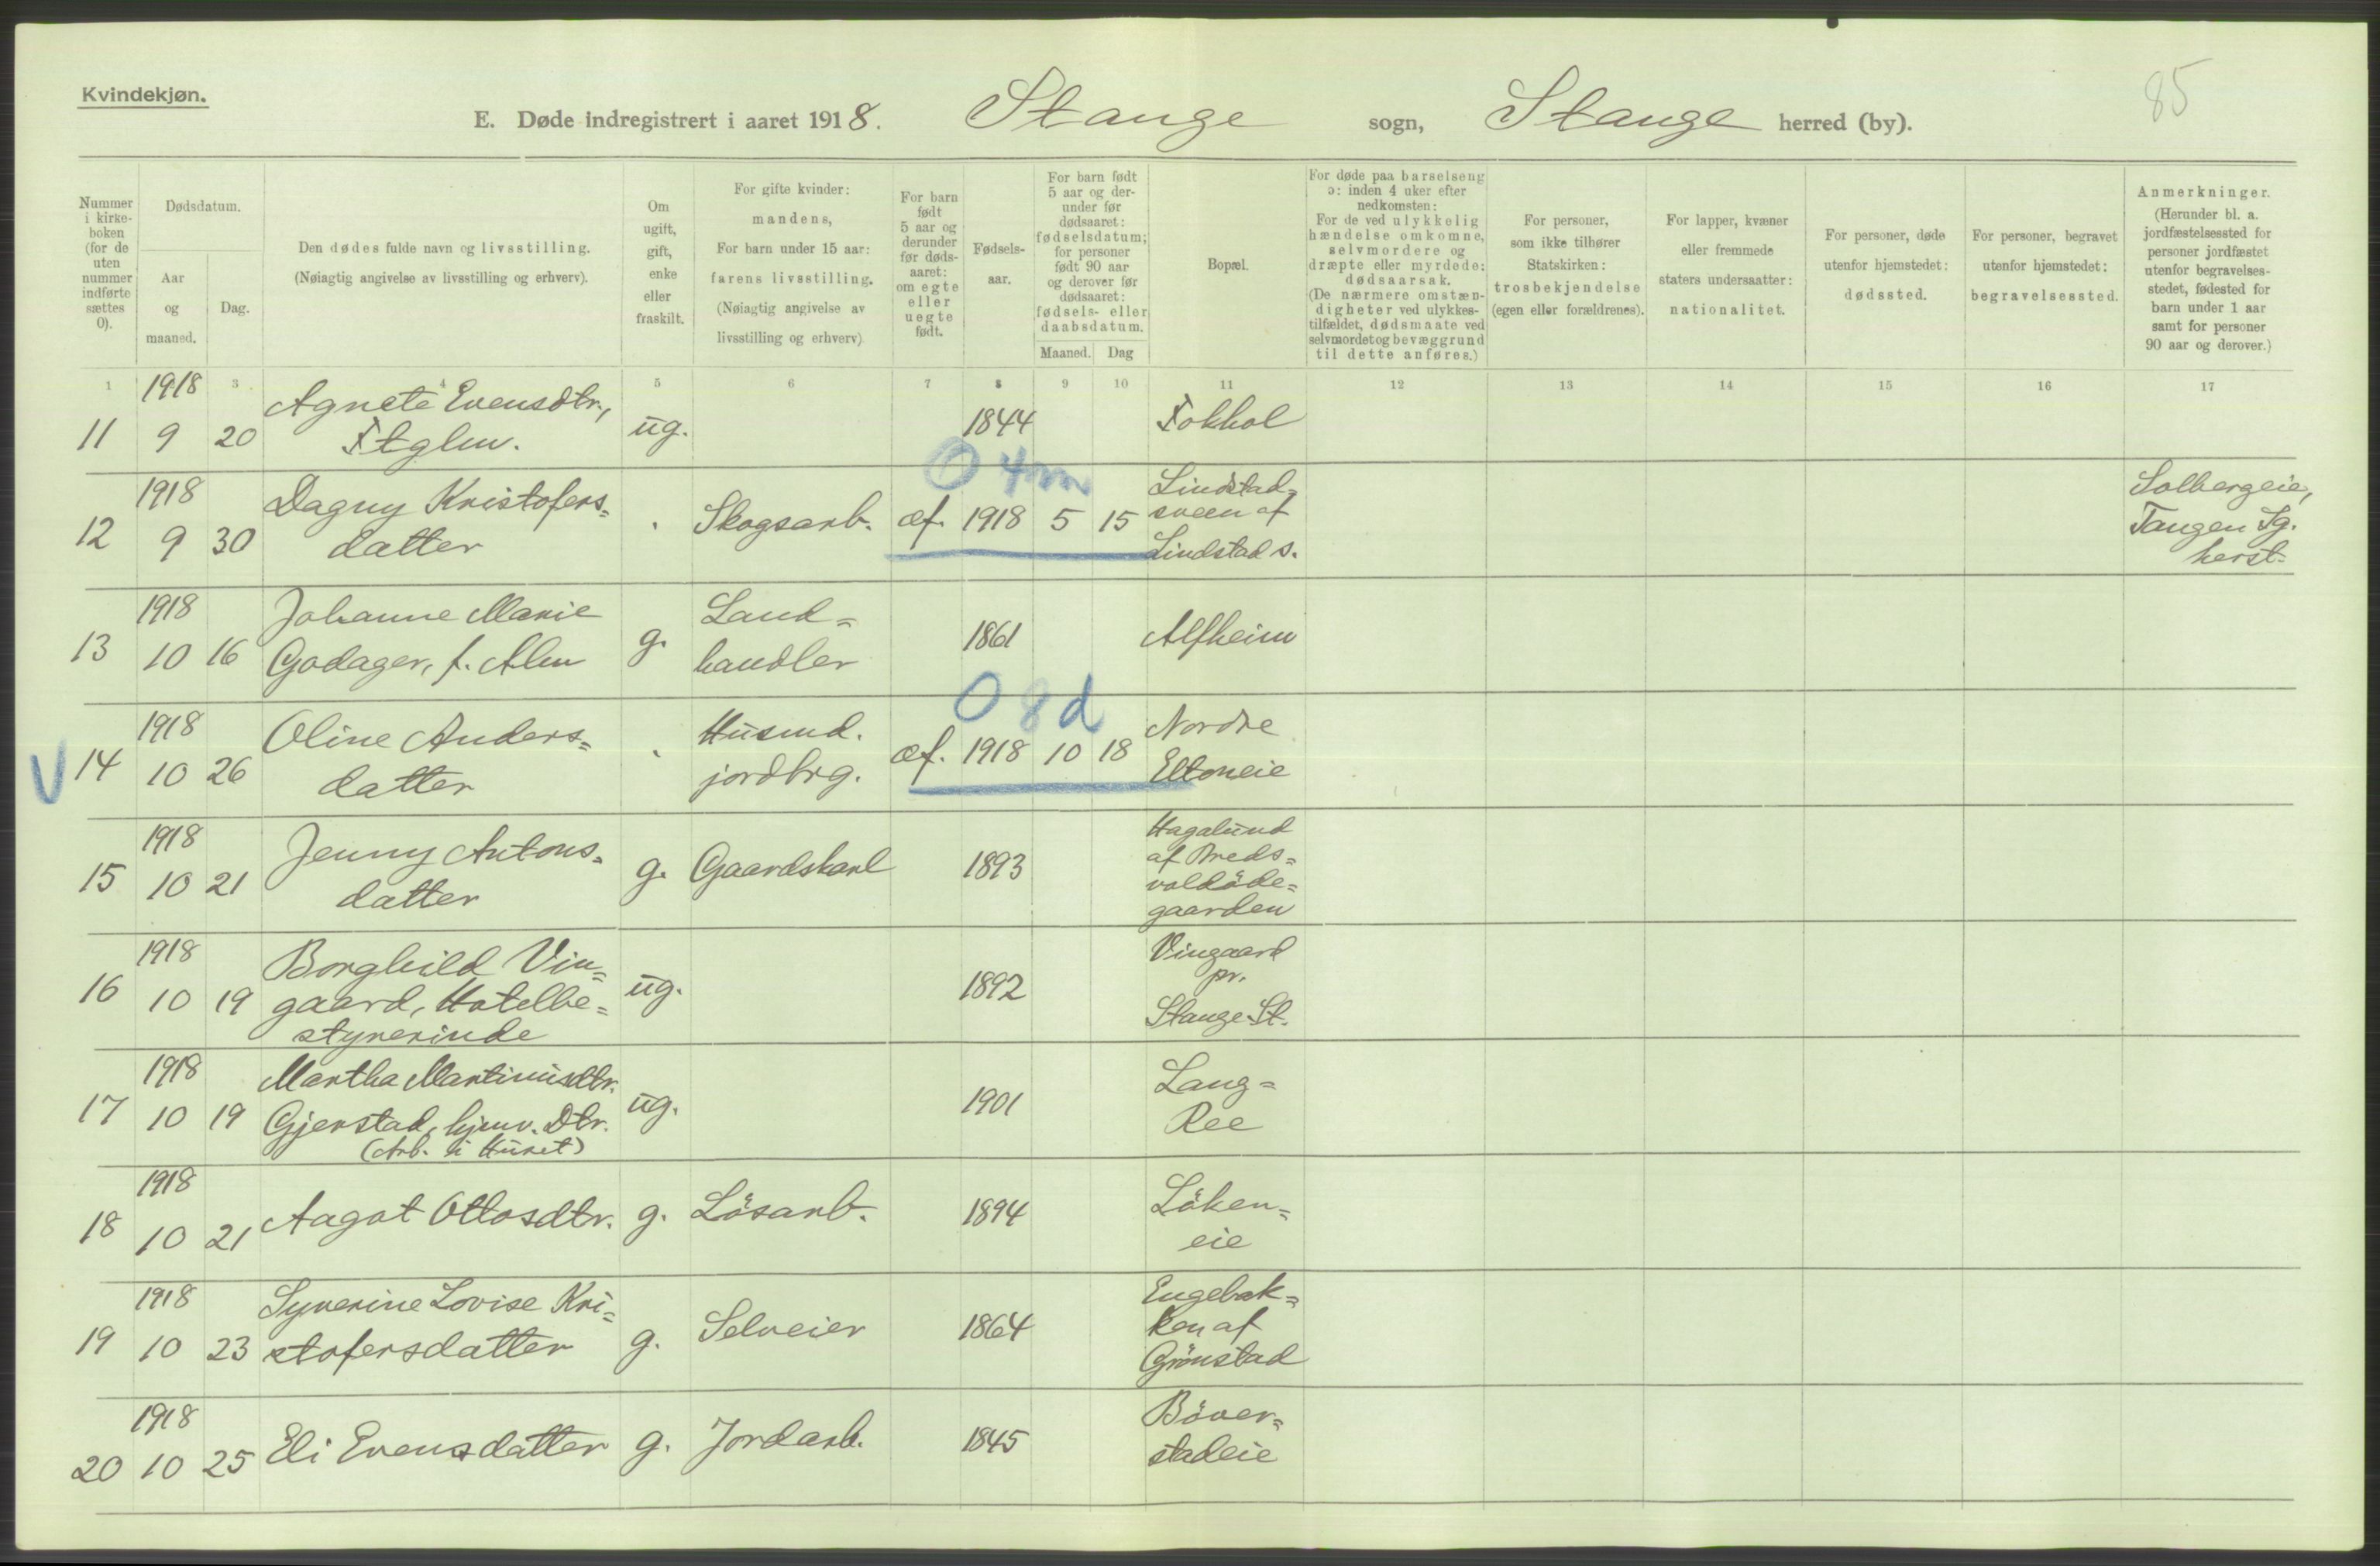 Kvindekjøn.
85
E. Døde indregistrert i aaret 1918. Stange sogn, Stange herred (by).
Nummer i kirke-boken (for de uten nummer indførte sættes 0).
Dødsdatum.
Aar og maaned.
Dag.
Den dødes fulde navn og livsstilling.
(Nøiagtig angivelse av livsstilling og erhverv).
Om ugift, gift, enke eller fraskilt.
For gifte kvinder: mandens,
For barn under 15 aar: farens livsstilling.
(Nøiagtig angivelse av livsstilling og erhverv)
For barn født 5 aar og derunder før døds-aaret: om egte eller uegte født.
Fødsels-aar.
For barn født 5 aar og der-under før dødsaaret: fødselsdatum; for personer født 90 aar og derover før dødsaaret: fødsels- eller daabsdatum.
Maaned. Dag
Bopæl.
For døde paa barselseng ɔ: inden 4 uker efter nedkomsten:
For de ved ulykkelig hændelse omkomne, selvmordere og dræpte eller myrdede: dødsaarsak.
(De nærmere omstæn-digheter ved ulykkes-tilfældet, dødsmaate ved selvmordet og bevæggrund til dette anføres.)
For personer, som ikke tilhører Statskirken: trosbekjendelse (egen eller forældrenes).
For lapper, kvæner eller fremmede staters undersaatter: nationalitet.
For personer, døde utenfor hjemstedet: dødssted.
For personer, begravet utenfor hjemstedet: begravelsessted.
Anmerkninger.
(Herunder bl. a. jordfæstelsessted for personer jordfæstet utenfor begravelses-stedet, fødested for barn under 1 aar samt for personer 90 aar og derover.)
1 3 4 5 6 7 8 9 10 11 12 13 14 15 16 17
1918 Agnete Evensdtr.,
11 9 20 Ftglm. ug. 1844 Fokhol
O 4 m
1918 Dagny Kristofers= Lindstad= Solbergeie,
12 9 30 datter . Skogsarb. æf. 1918 5 15 sveen af Tangen Sg.
Lindstad s. herst.
1918 Johanne Marie Land=
13 10 16 Godager, f. Alm g. handler 1861 Alfheim
O 8 d
1918 Oline Anders= Husmd. Nordre
V 14 10 26 datter . jordbrg. æf. 1918 10 18 Eltoneie
1918 Jenny Antons= Hagalund
15 10 21 datter g. Gaardskarl 1893 af Breds=
voldöde=
gaarden
1918 Borghild Vin= Vingaard
16 10 19 gaard, Hotelbe= ug. 1892 pr.
styrerinde Stange St.
1918 Martha Martinusdtr. Lang=
17 10 19 Gjerstad, hjmv. Dtr. ug. 1901 Ree
(Arb. i Huset)
1918 Löken=
18 10 21 Aagot Ottosdtr. g. Lösarb. 1894 eie
1918 Syverine Lovise Kri= Engebak=
19 10 23 stofersdatter g. Selveier 1864 ken af
Grönstad
1918 Böver=
20 10 25 Eli Evensdatter g. Jordarb. 1845 stadeie